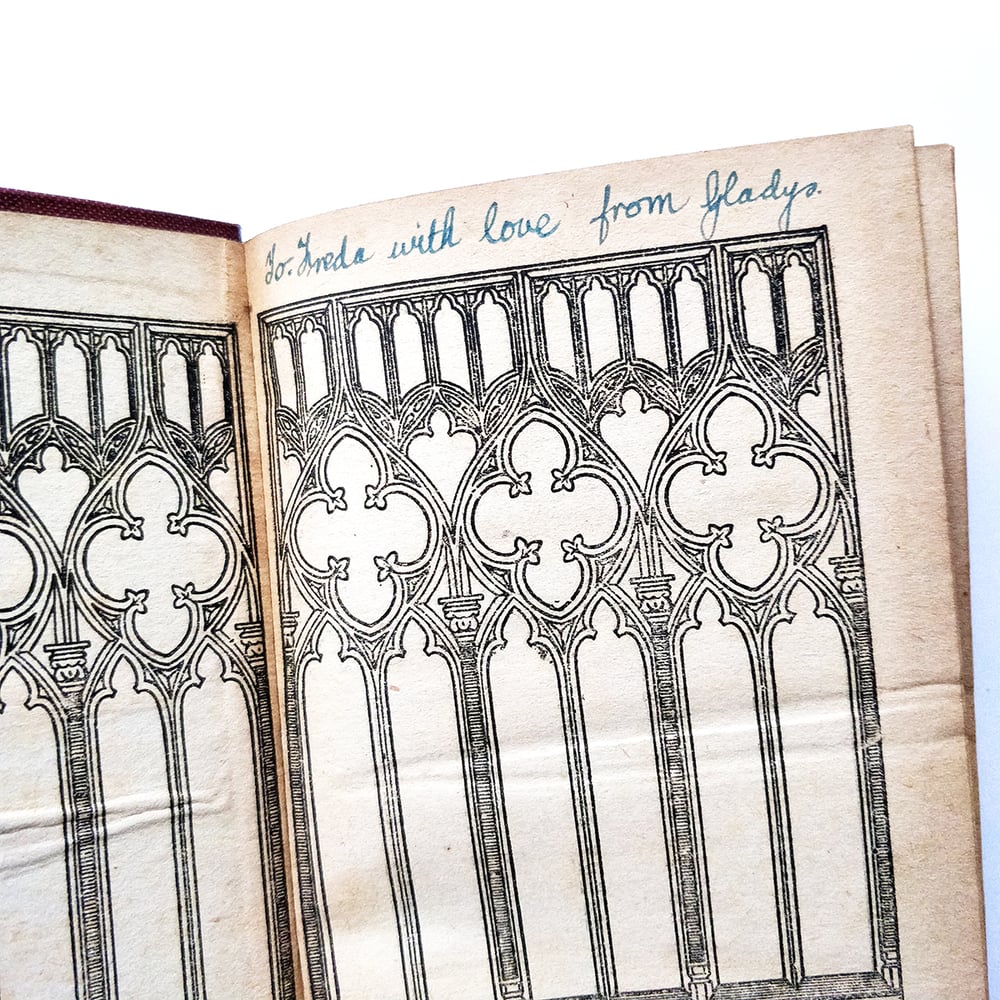 To. Freda with love from Gladys.